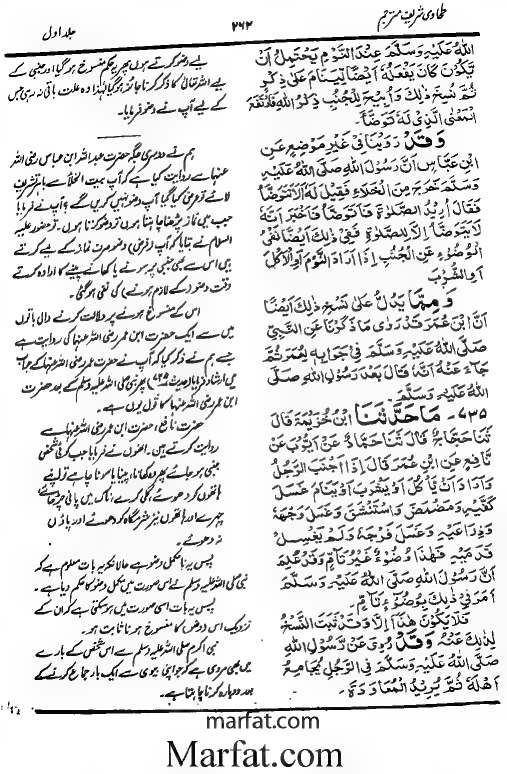 طحاوی شریف مترجم
۲۶۲
جلد اول
اللهُ عَلَيْهِ وَسَلَّمَ عِنْدَ النَّوْمِ يَحْتَمِلُ أَنْ
تَكُونَ كَانَ يَفْعَلُهُ أَيْضًا لِيَنَامَ عَلَى ذِكْرٍ
ثُمَّ نُسِخَ ذٰلِكَ وَأُبِيْحَ لِلْجُنُبِ ذِكْرُ اللهِ فَارْتَفَعَ
الْمَعْنَى الَّذِي لَهُ تَوَضَّأَ
وَقَدْ رَوَيْنَا فِي غَيْرِ مَوْضِعٍ عَنِ
ابْنِ عَبَّاسٍ أَنَّ رَسُولَ اللهِ صَلَّى اللهُ عَلَيْهِ
وَسَلَّمَ خَرَجَ مِنَ الْخَلَاءِ فَقِيْلَ لَهُ أَلَا تَتَوَضَّأُ
فَقَالَ أُرِيْدُ الصَّلٰوةَ فَأَتَوَضَّأُ فَأَخْبَرَ أَنَّهُ
لَا يَتَوَضَّأُ إِلَّا لِلصَّلٰوةِ فَفِي ذٰلِكَ أَيْضًا نَفْيُ
الْوُضُوْءِ عَنِ الْجُنُبِ إِذَا أَرَادَ النَّوْمَ أَوِ الْأَكْلَ
أَوِ الشُّرْبَ
وَمِمَّا يَدُلُّ عَلَى نَسْخِ ذٰلِكَ أَيْضًا
أَنَّ ابْنَ عُمَرَ قَدْ رَوَى مَا ذَكَرْنَا عَنِ النَّبِيِّ
صَلَّى اللهُ عَلَيْهِ وَسَلَّمَ فِي جَوَابِهِ لِعُمَرَ ثُمَّ
جَاءَ عَنْهُ أَنَّهُ قَالَ بَعْدَ رَسُوْلِ اللهِ صَلَّى
اللهُ عَلَيْهِ وَسَلَّمَ
۷۳۵- مَا حَدَّثَنَا ابْنُ خُزَيْمَةَ قَالَ
ثَنَا حَجَّاجٌ قَالَ ثَنَا حَمَّادٌ عَنْ أَيُّوْبَ عَنْ
نَافِعٍ عَنِ ابْنِ عُمَرَ قَالَ إِذَا أَجْنَبَ الرَّجُلُ
وَأَرَادَ أَنْ يَأْكُلَ أَوْ يَشْرَبَ أَوْ يَنَامَ غَسَلَ
كَفَّيْهِ وَمَضْمَضَ وَاسْتَنْشَقَ وَغَسَلَ وَجْهَهُ
وَذِرَاعَيْهِ وَغَسَلَ فَرْجَهُ وَلَمْ يَغْسِلْ
قَدَمَيْهِ فَهٰذَا وُضُوْءٌ غَيْرُ تَامٍّ وَقَدْ عَلِمَ
أَنَّ رَسُوْلَ اللهِ صَلَّى اللهُ عَلَيْهِ وَسَلَّمَ
أَمَرَ فِي ذٰلِكَ بِوُضُوْءٍ تَامٍّ
فَلَا يَكُوْنُ هٰذَا إِلَّا وَقَدْ ثَبَتَ النَّسْخُ
لِذٰلِكَ عِنْدَهُ وَقَدْ رُوِيَ عَنْ رَّسُوْلِ اللهِ
صَلَّى اللهُ عَلَيْهِ وَسَلَّمَ فِي الرَّجُلِ يُجَامِعُ
أَهْلَهُ ثُمَّ يُرِيْدُ الْمُعَاوَدَةَ
لیے وضو کرتے ہوں پھر یہ حکم منسوخ ہو گیا اور جنبی کے
لیے اللہ تعالیٰ کا ذکر کرنا جائز ہو گیا لہٰذا وہ علت باقی نہ رہی جس
کے لیے آپ نے وضو فرمایا۔
ہم نے دوسری جگہ حضرت عبداللہ ابن عباس رضی اللہ
عنہما سے روایت کیا ہے کہ آپ بیت الخلاء سے باہر تشریف
لائے تو عرض کیا گیا آپ وضو نہیں کریں گے؟ آپ نے فرمایا
جب میں نماز پڑھنا چاہتا ہوں تو وضو کرتا ہوں۔ تو حضور علیہ
السلام نے بتایا کہ آپ (فرض) وضو صرف نماز کے لیے کرتے
ہیں اس سے بھی جنبی پر سونے یا کھانے پینے کا ارادہ کرتے
وقت وضو (کے لازم ہونے) کی نفی ہو گئی۔
اس کے منسوخ ہونے پر دلالت کرنے والی باتوں
میں سے ایک حضرت ابن عمر رضی اللہ عنہا کی روایت ہے
جسے ہم نے ذکر کیا کہ آپ نے حضرت عمر رضی اللہ عنہ کے جواب
میں ارشاد فرمایا پھر نبی صلی اللہ علیہ وسلم کے بعد حضرت
ابن عمر رضی اللہ عنہما کا قول یوں ہے۔
حضرت نافع، حضرت ابن عمر رضی اللہ عنہما سے
روایت کرتے ہیں۔ انھوں نے فرمایا جب کوئی شخص
جنبی ہو جائے پھر وہ کھانا، پینا یا سونا چاہے تو اپنے
ہاتھوں کو دھوئے، کلی کرے، ناک میں پانی چڑھائے
چہرے اور ہاتھوں نیز شرمگاہ کو دھوئے اور پاؤں
نہ دھوئے۔
پس یہ نامکمل وضو ہے حالانکہ یہ بات معلوم ہے کہ
نبی صلی اللہ علیہ وسلم نے اس صورت میں مکمل وضو کا حکم دیا ہے۔
پس یہ بات اسی صورت میں ہو سکتی ہے کہ ان کے
نزدیک اس وضو کا منسوخ ہونا ثابت ہو۔
نبی اکرم صلی اللہ علیہ وسلم سے اس شخص کے بارے
میں بھی مروی ہے کہ جو اپنی بیوی سے ایک بار جماع کرنے کے
بعد دوبارہ کرنا چاہتا ہے۔
marfat.com
Marfat.com